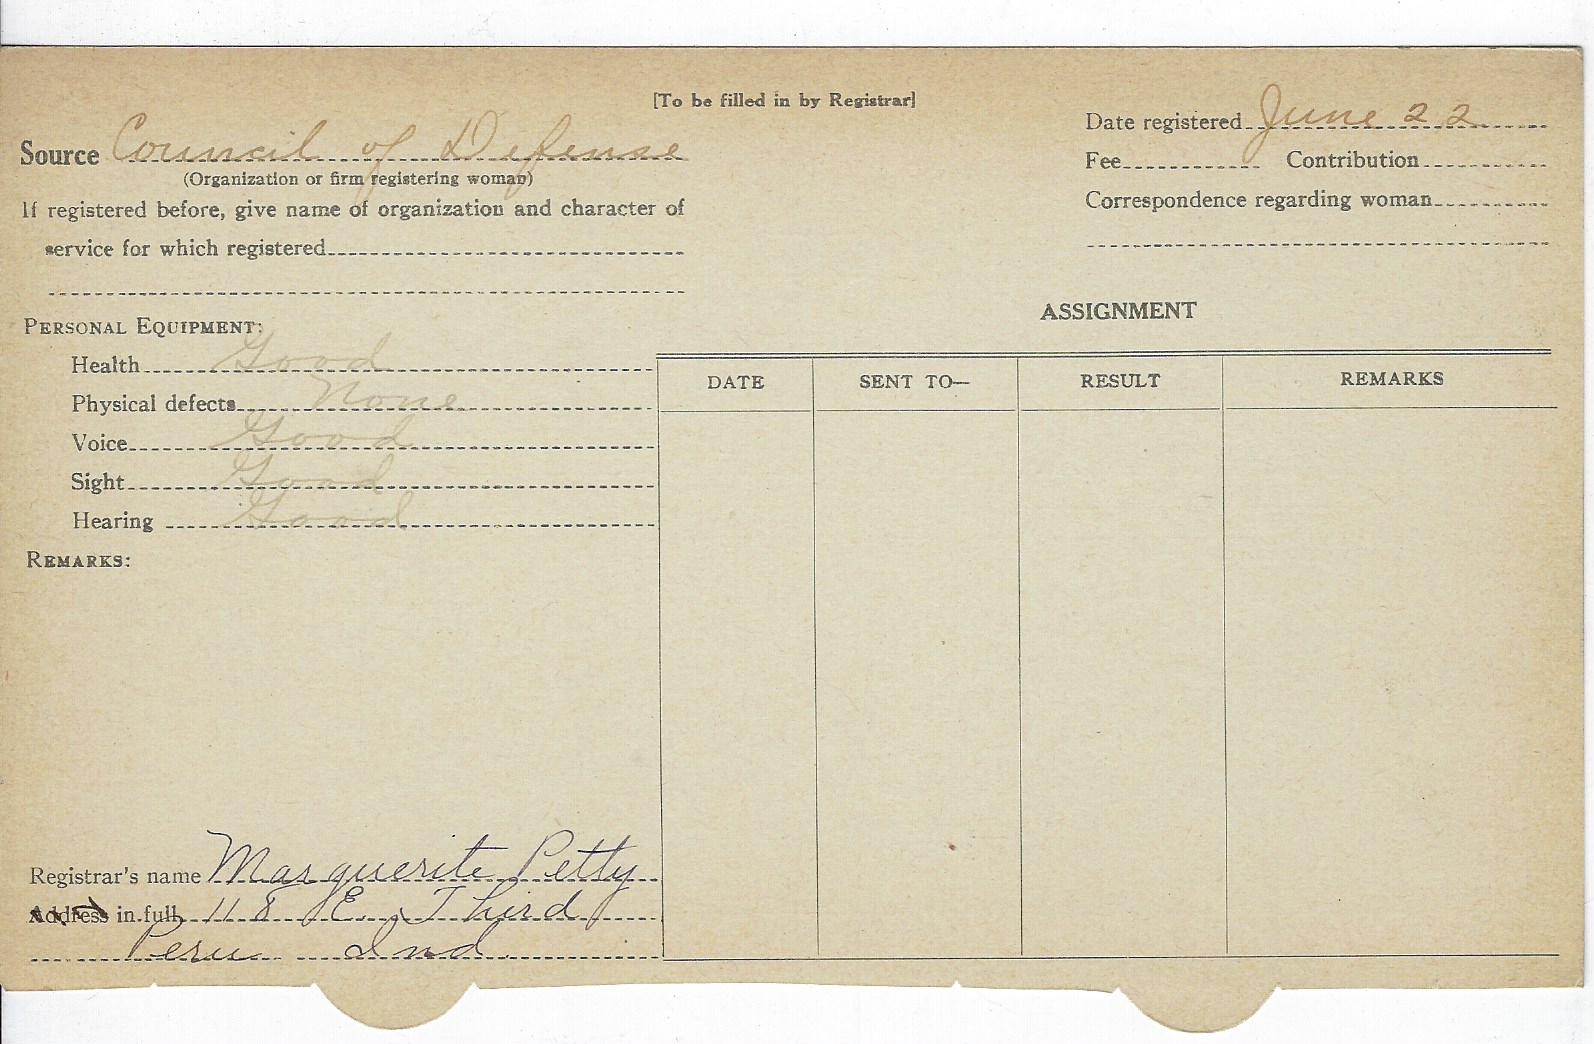 [To be filled in by Registrar]
Source Council of Defense
(Organization or firm registering woman)
If registered before, give name of organization and character of
service for which registered
Date registered June 22
Fee Contribution
Correspondence regarding woman
PERSONAL EQUIPMENT:
Health Good
Physical defects None
Voice Good
Sight Good
Hearing Good
REMARKS:
ASSIGNMENT
DATE SENT TO— RESULT REMARKS
Registrar's name Marguerite Petty
Address in full 118 E. Third
Peru Ind.